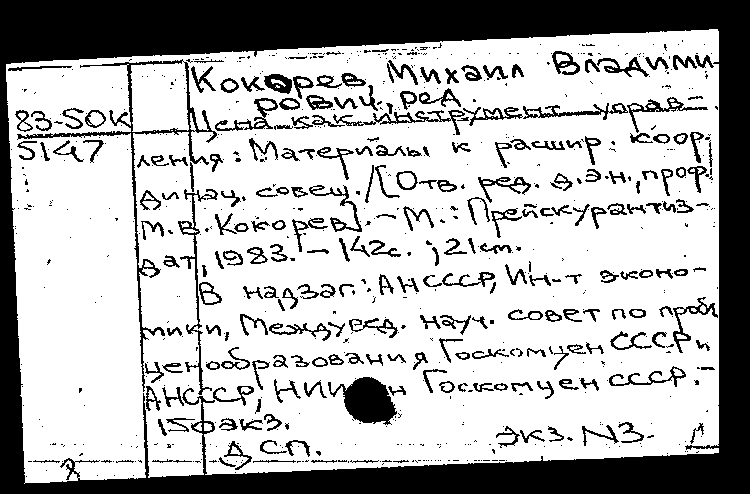 Кокорев, Михаил Владими-
рович, ред.
83-5OK Цена как инструмент управ-
5147 ления: Материалы к расшир. коор-
динац. совещ. /[Отв. ред. д.э.н., проф.
М.В. Кокорев]. - М.: Прейскурантиз-
дат, 1983. - 142с. ; 21см.
В надзаг.: АНСССР, Ин-т эконо-
мики, Междувед. науч. совет по пробл
ценообразования Госкомцен СССР и
АНСССР, Госкомцен СССР. -
150экз.
ДСП. Экз. N3.